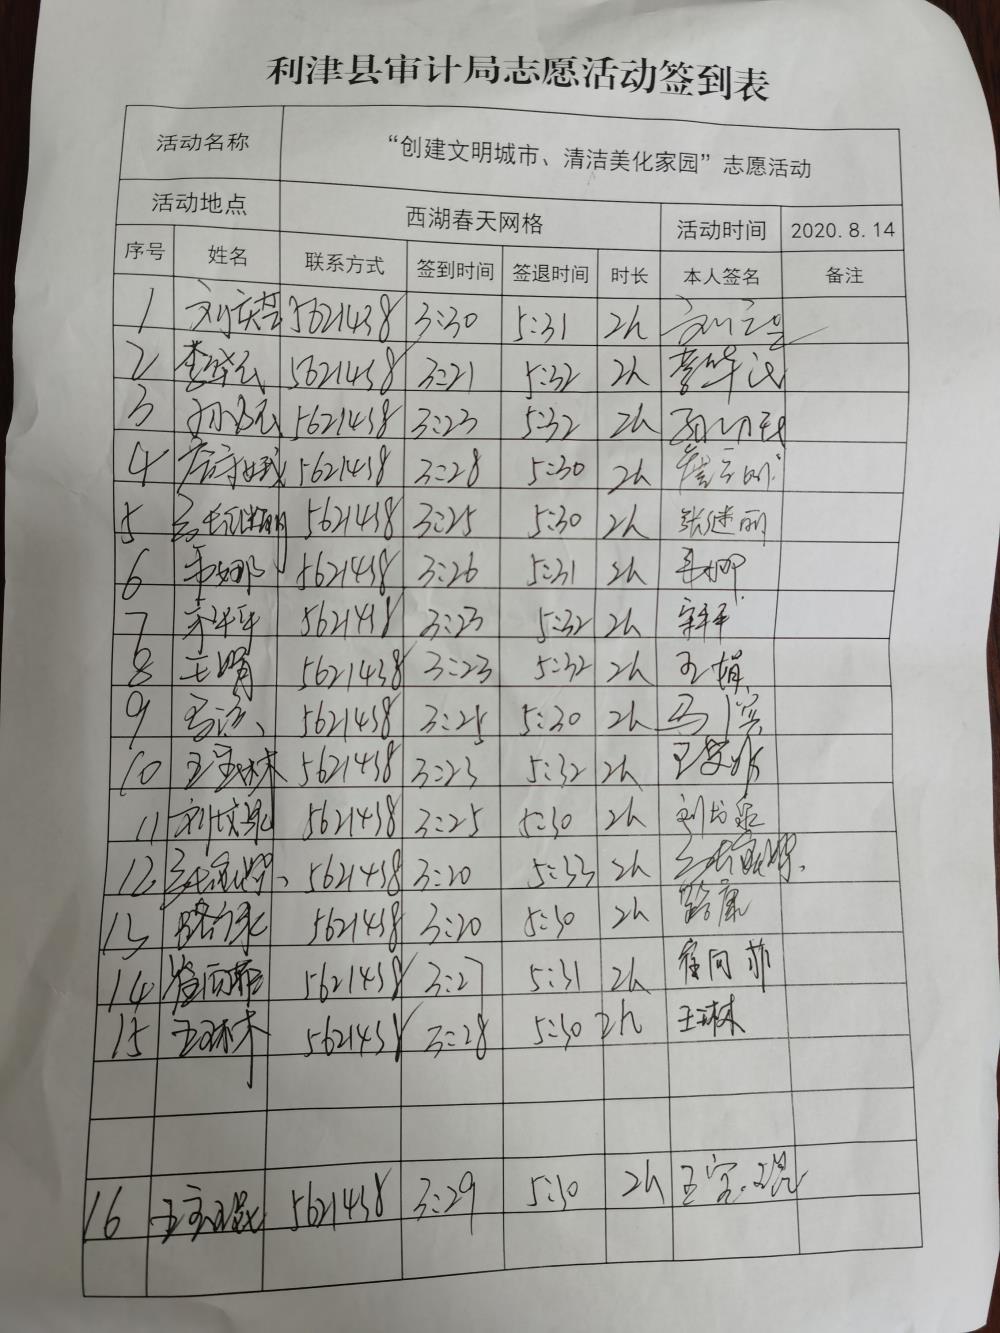 利津县审计局志愿活动签到表
活动名称 “创建文明城市、清洁美化家园”志愿活动
活动地点 西湖春天网格 活动时间 2020.8.14
序号 姓名 联系方式 签到时间 签退时间 时长 本人签名 备注
1 5621438 3:30 5:31 2h
2 5621438 3:21 5:32 2h
3 5621438 3:23 5:32 2h
4 5621438 3:28 5:30 2h
5 张继丽 5621438 3:25 5:30 2h 张继丽
6 5621438 3:26 5:31 2h
7 宋平平 5621438 3:23 5:32 2h 宋平平
8 王娟 5621438 3:23 5:32 2h 王娟
9 马滨 5621438 3:25 5:30 2h 马滨
10 5621438 3:23 5:32 2h
11 5621438 3:25 5:30 2h
12 5621438 3:20 5:33 2h
13 5621438 3:20 5:30 2h
14 崔向菲 5621438 3:27 5:31 2h 崔向菲
15 王琳 5621438 3:28 5:30 2h 王琳
16 5621438 3:29 5:30 2h